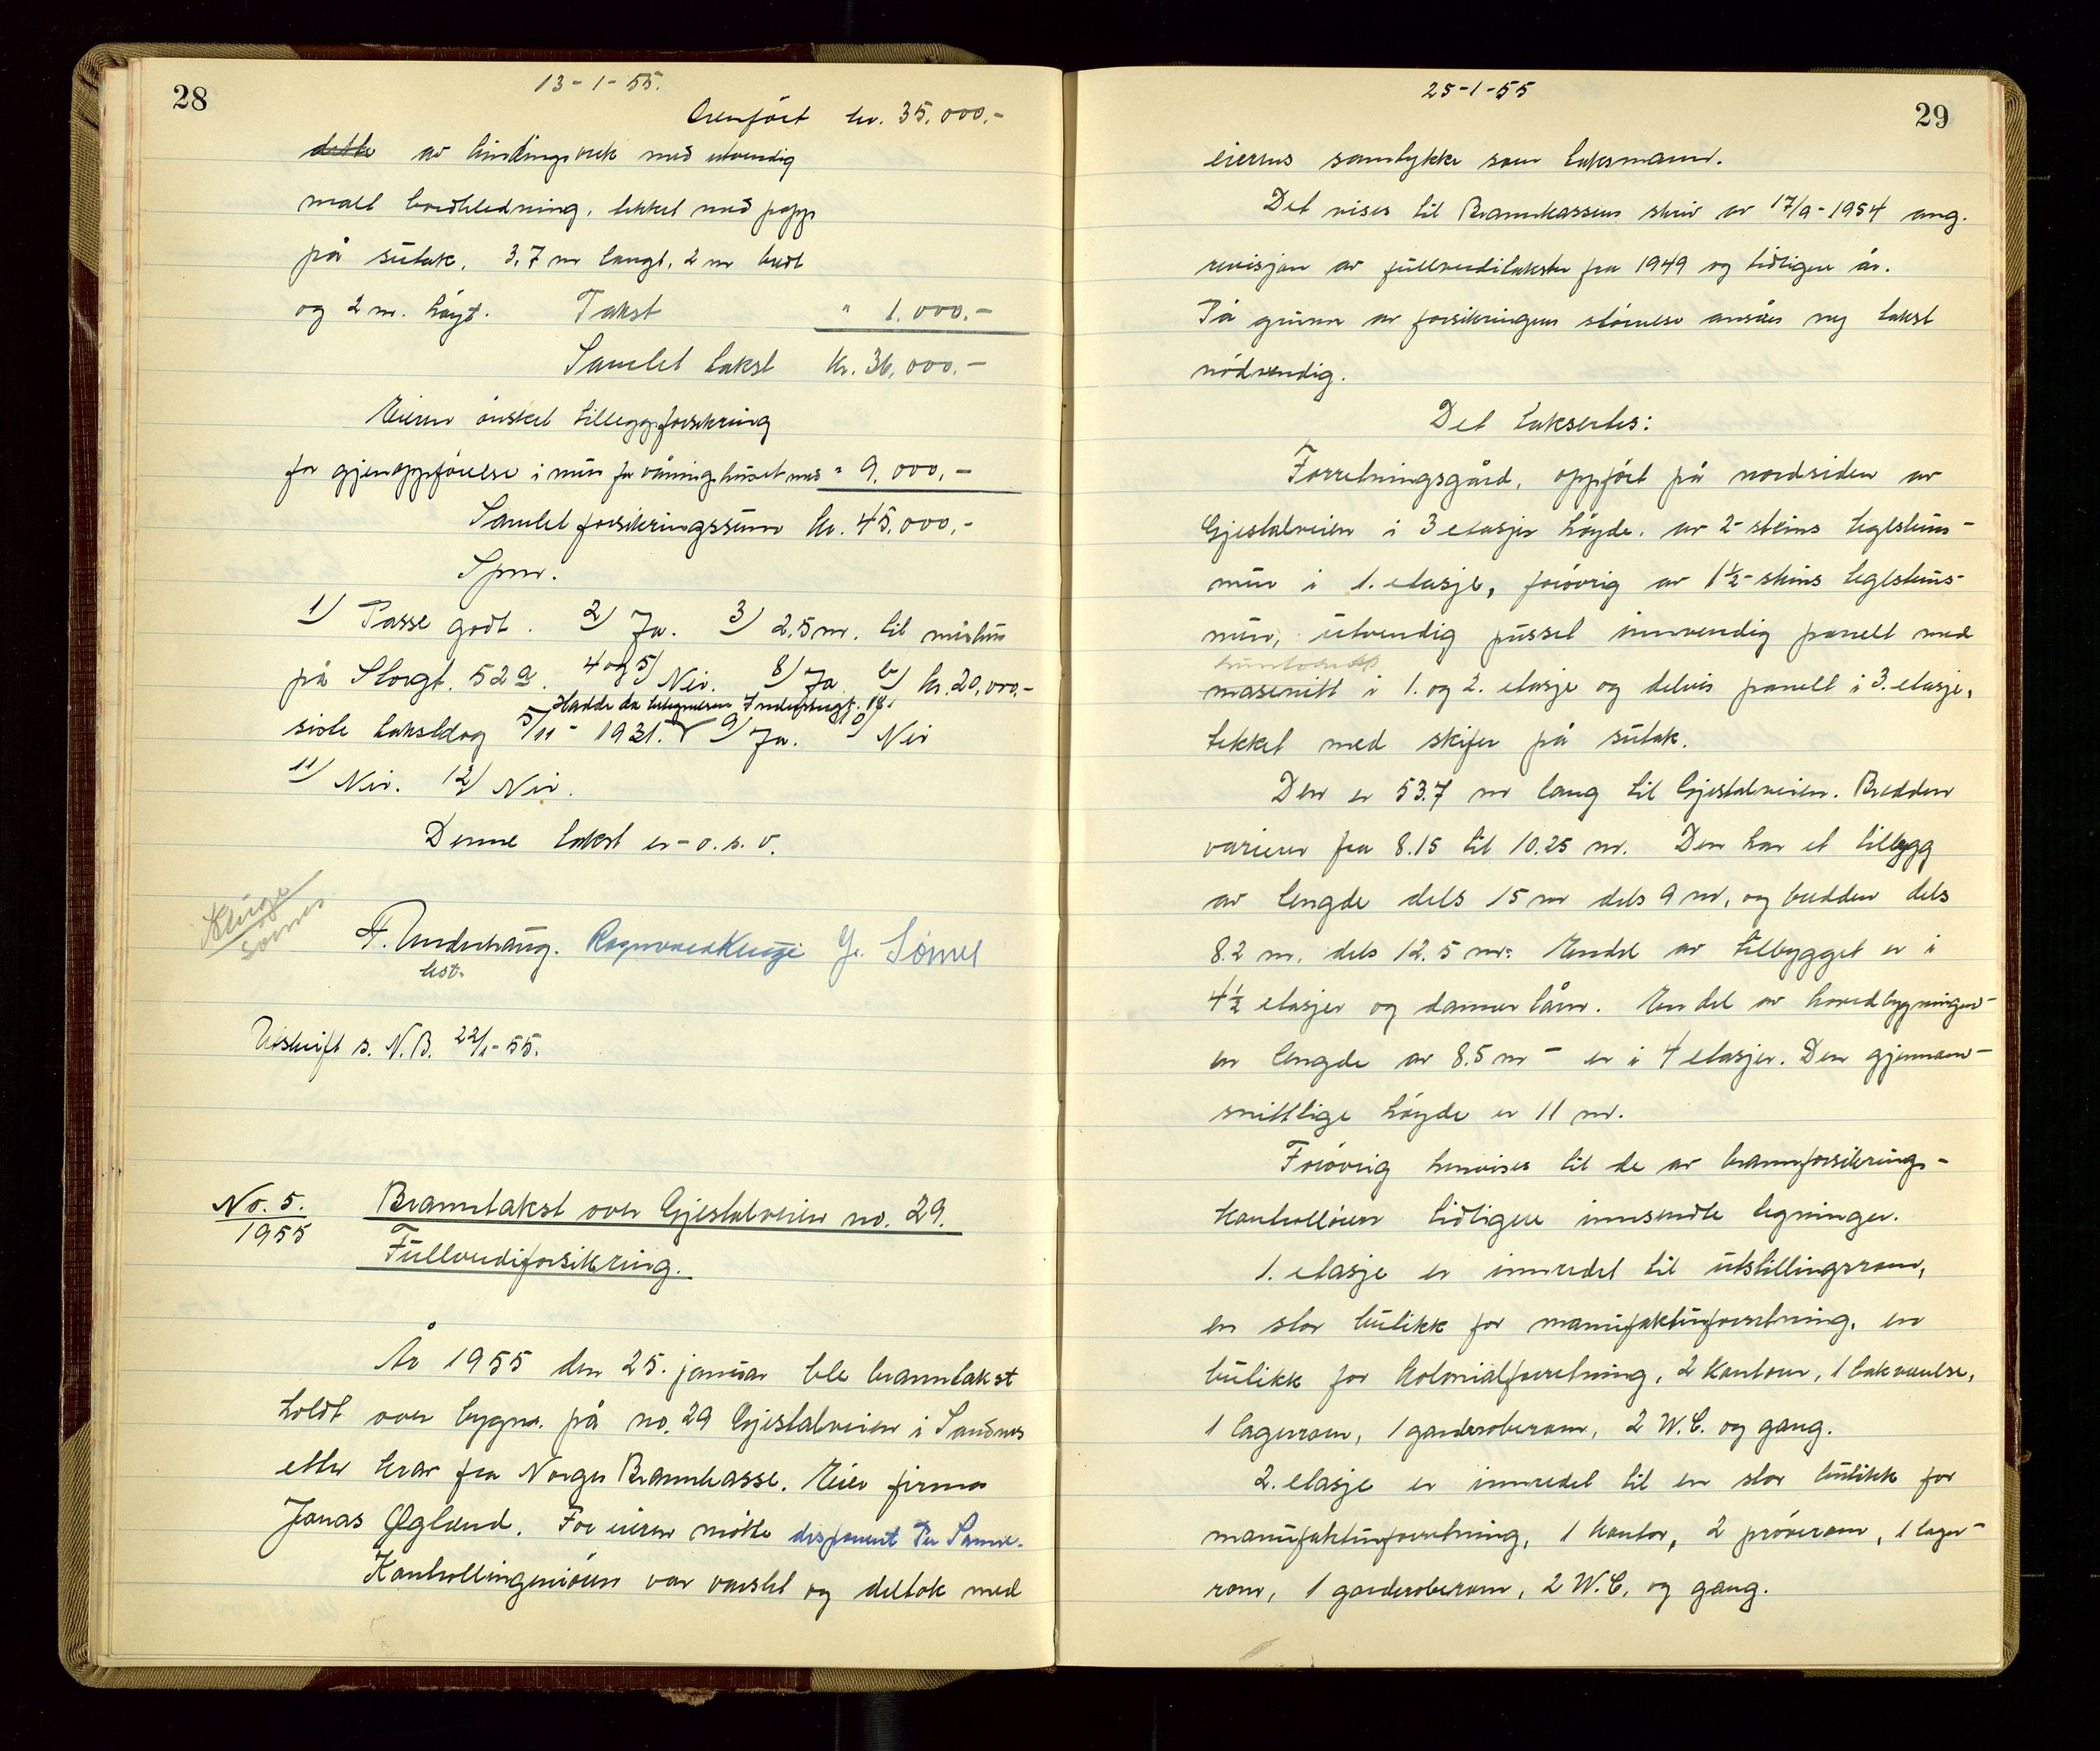 28
13-1-55.
Overført kr. 35.000.-
dette av bindingsverk med utvendig
malt bordkledning, tekket med papp
på sutak. 3.7 m langt, 2 m bredt
og 2 m. høyt. Takst " 1.000.-
Samlet takst kr. 36.000.-
Eieren ønsket tilleggsforsikring
for gjenoppførelse i mur for våningshuset med " 9.000.-
Samlet forsikringssum kr. 45.000.-
Spm.
1) Passe godt. 2) Ja. 3) 2,5 m. til murhus
på Storgt. 52a. 4 og 5) Nei. 8) Ja b) kr. 20,000.-
Hadde da betegnelsen
siste takstdag 5/11 - 1931. 9) Ja. 10) Nei
11) Nei. 12) Nei.
Denne takst er - o.s.v.
Kluge
Sømes
F. Underhaug. Ragnvald Kluge G. Sømes
best.
Utskrift s. N.B. 22/1-55.
No. 5.
1955
Branntakst over Gjestalveien no. 29.
Fullverdiforsikring.
År 1955 den 25. januar ble branntakst
holdt over bygn. på no. 29 Gjestalveien i Sandnes
etter krav fra Norges Brannkasse. Eier firma
Jonas Øglænd. For eieren møtte disponent Per
Kontrollingeniøren var varslet og deltok med
25-1-55
29
eierens samtykke som taksmann.
Det vises til Brannkassens skriv av 17/9-1954 ang.
revisjon av fullverditakster fra 1949 og tidligere år.
På grunn av forsikringens størrelse ansåes ny takst
nødvendig.
Det taksertes:
Forretningsgård, oppført på nordsiden av
Gjestalveien i 3 etasjes høyde, av 2-steins teglsteins-
mur i 1. etasje, forøvrig av 1½-steins teglsteins-
mur, utvendig pusset innvendig panelt med
masenitt i 1. og 2. etasje og delvis panelt i 3. etasje,
tekket med skifer på sutak.
Den er 53.7 m lang til Gjestalveien. Bredden
varierer fra 8.15 til 10.25 m. Den har et tilbygg
av lengde dels 15 m dels 9 m, og bredden dels
8.2 m, dels 12.5 m. Endel av tilbygget er i
4½ etasjer og danner tårn. En del av hovedbygningen-
en lengde av 8.5 m - er i 4 etasjer. Den gjennom-
snittlige høyde er 11 m.
Forøvrig henvises til de av brannforsikrings-
kontrolløren tidligere innsendte tegninger.
1. etasje er innredet til utstillingsrom,
en stor butikk for manufakturforretning, en
butikk for kolonialforretning, 2 kontorer, 1 bakværelse,
1 lagerrom, 1 garderoberom, 2 W.C. og gang.
2. etasje er innredet til en stor butikk for
manufakturforretning, 1 kontor, 2 prøverom, 1 lager-
rom, 1 garderoberom, 2 W.C. og gang.